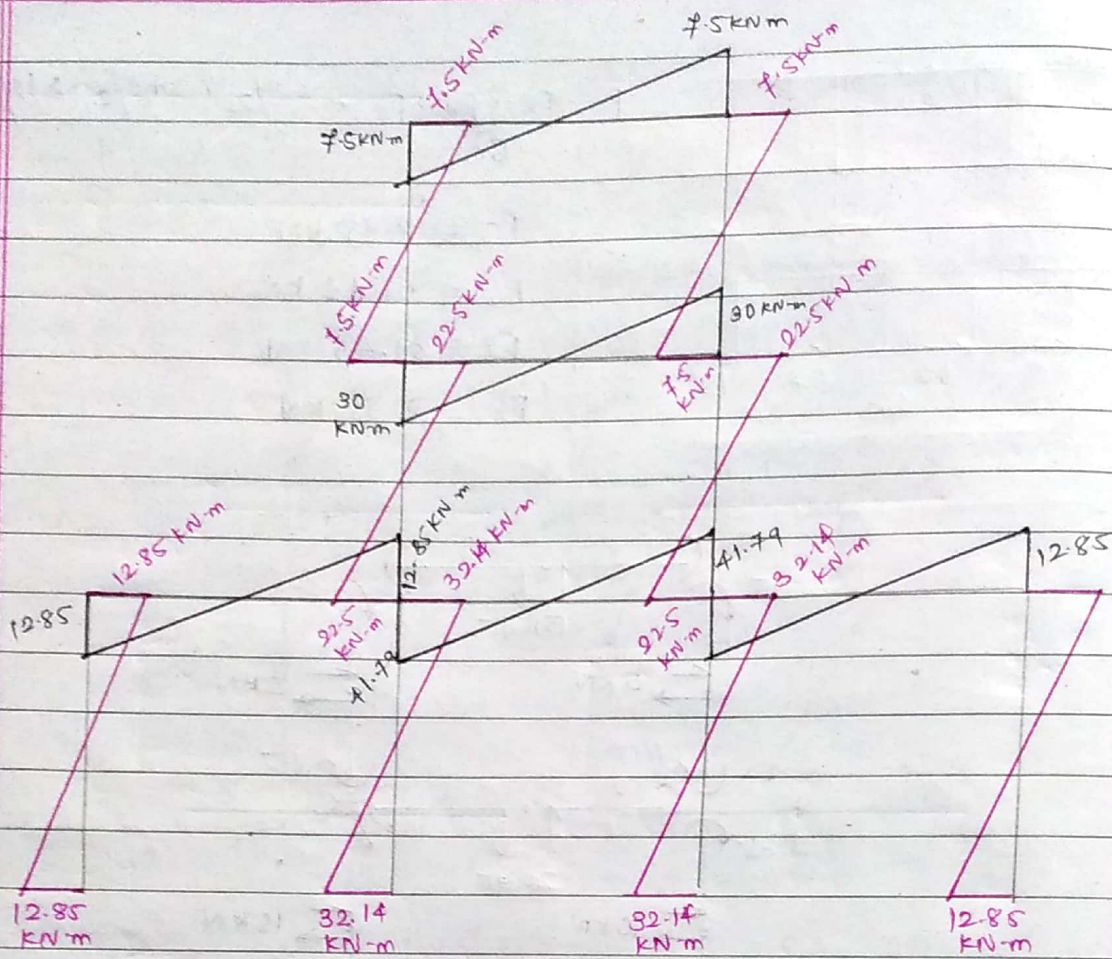 7.5KNm
7.5KN-m
7.5KN-m
7.5KN-m
7.5KN-m
22.5KN-m
30KN-m
22.5KN-m
7.5
KN-m
30
KN-m
12.85KN-m
12.85KNm
32.14KN-m
41.79
32.14
KN-m
12.85
12.85
22.5
KN-m
22.5
KN-m
41.79
12.85
KN-m
32.14
KN-m
32.14
KN-m
12.85
KN-m